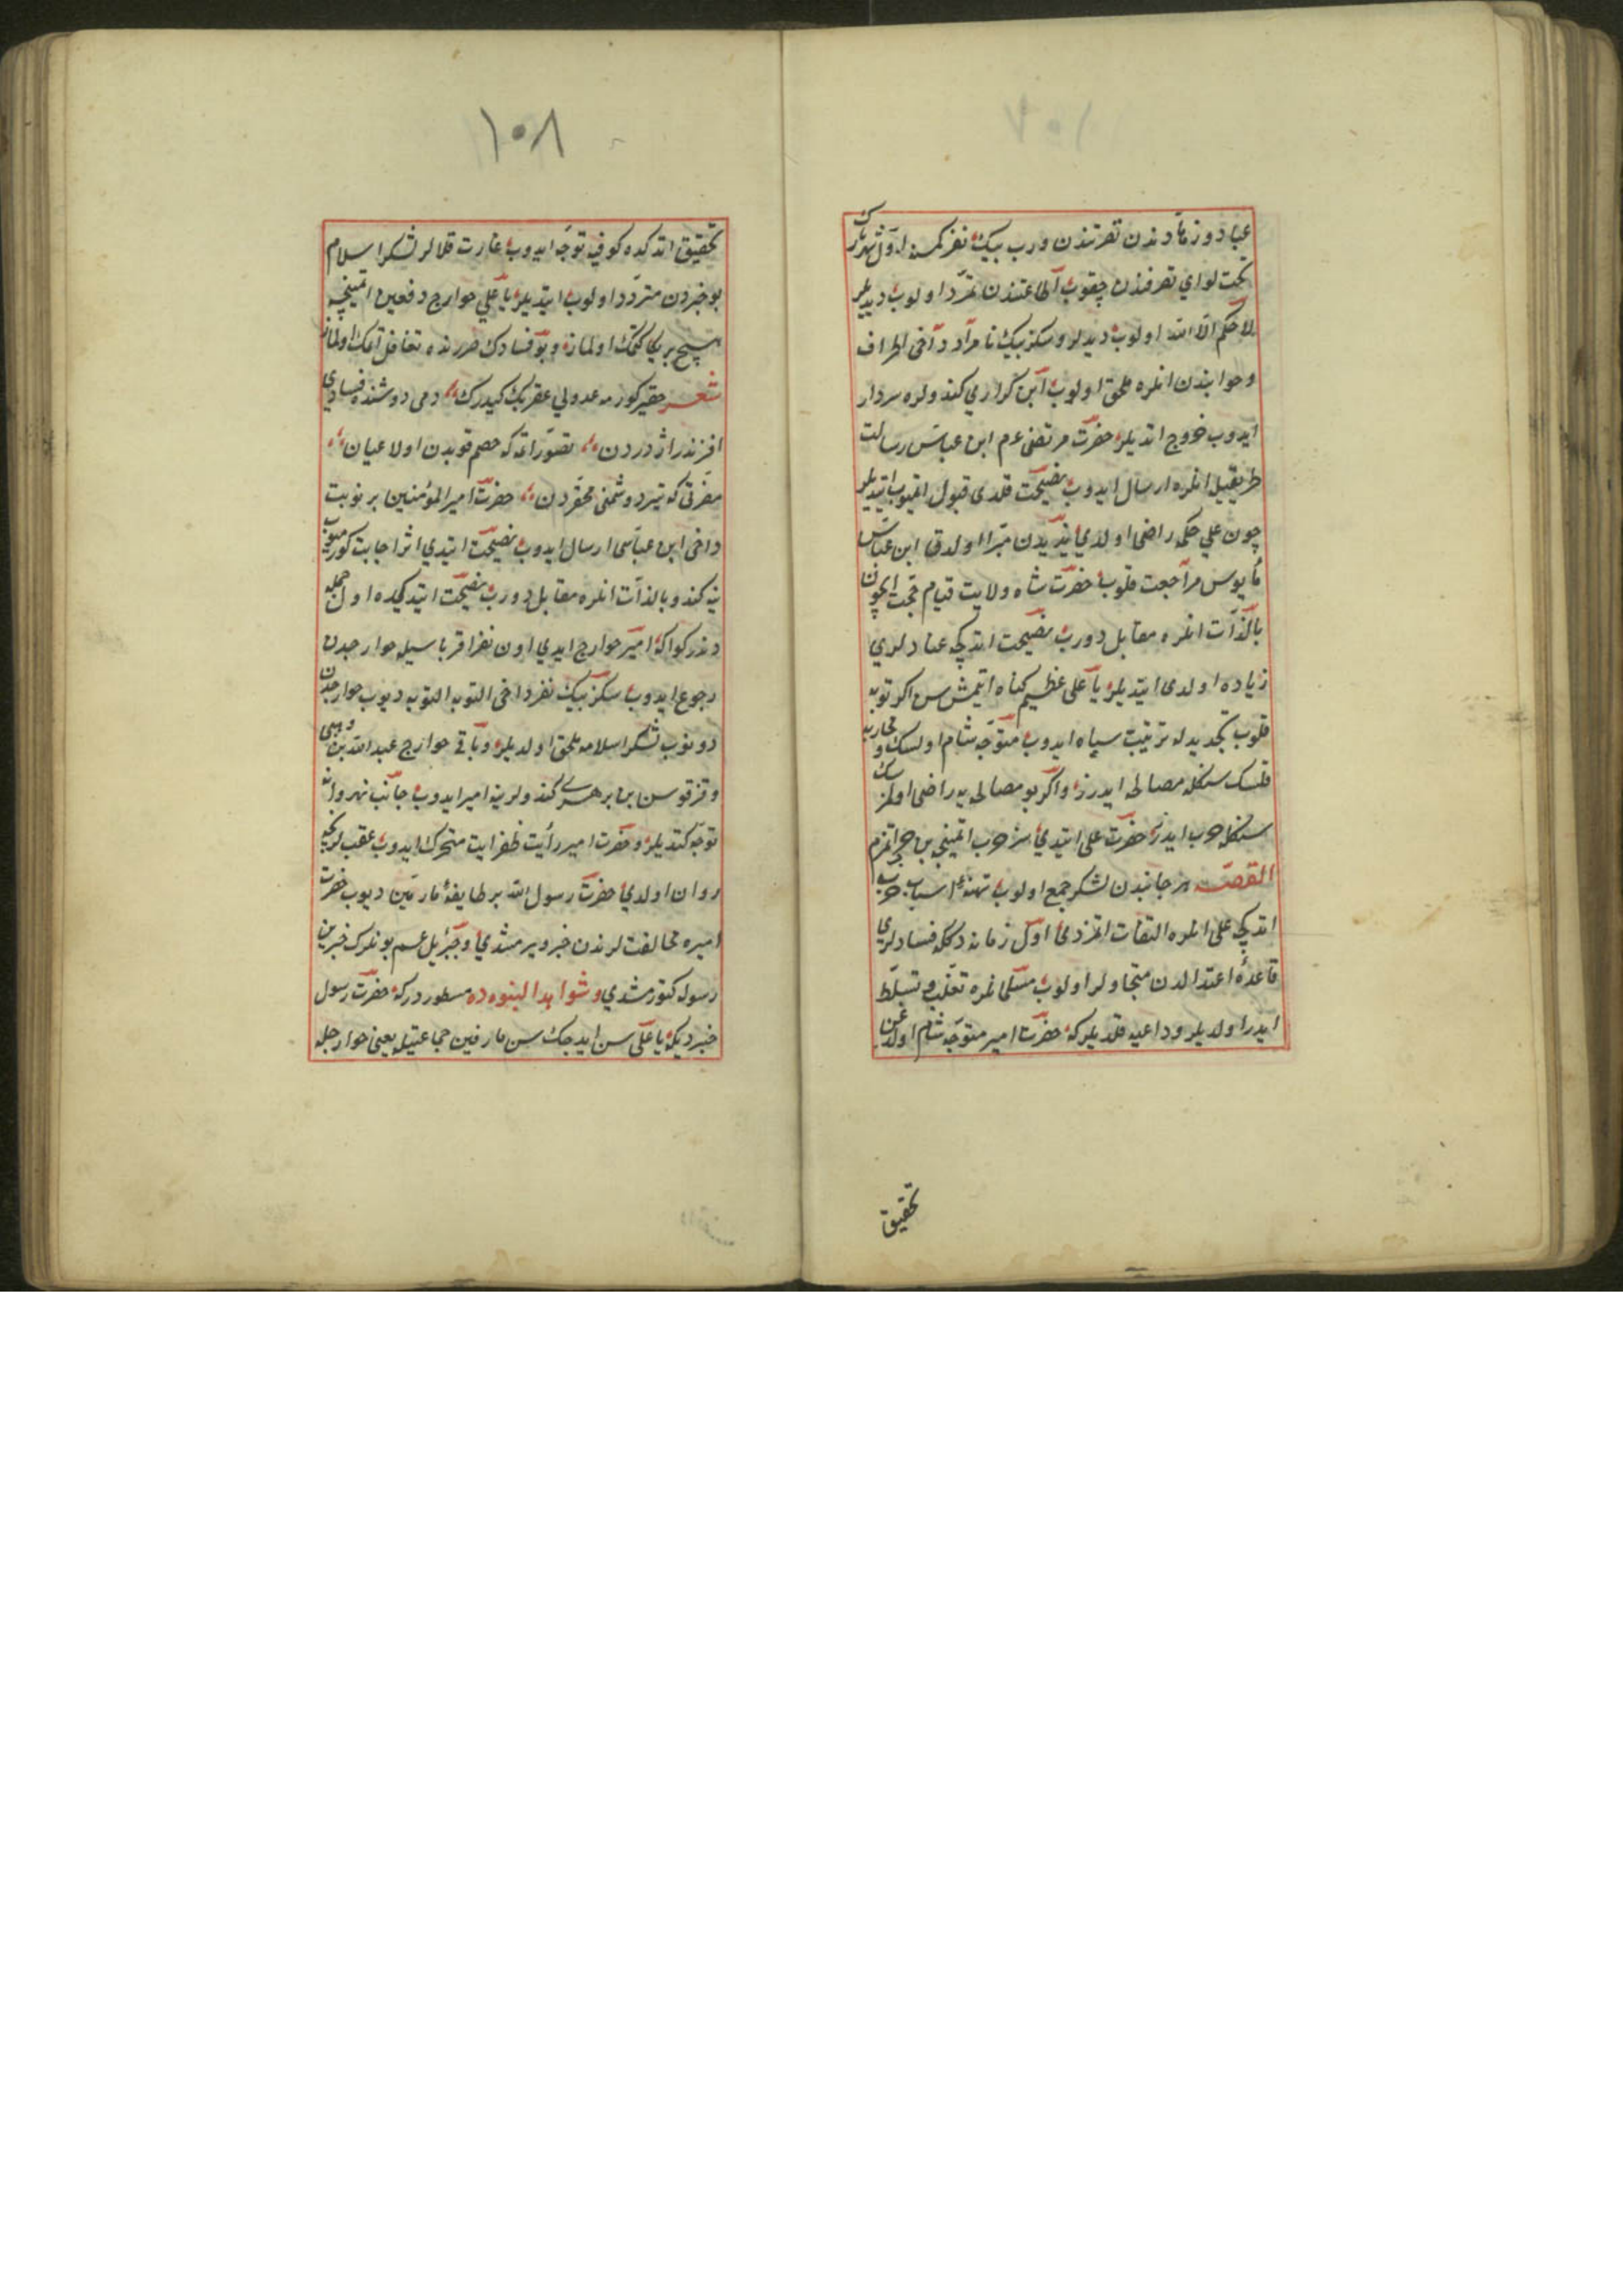 ١٠٧
عباد و زهاددن تقرتندن ورب بيك نفر كمسه اول شهردن
تحت لواي تصرفدن چقوب اطاعتندن تمرد اولوب ديديلر
لا حكم الا الله اولوب ديديلر وسكز بيك نامراد دخى اطراف
وجوابندن انلره ملحق اولوب ابن كراري كندولره سردار
ايدوب خروج اتديلر حضرت مرتضى ع م ابن عباس رسالت
طريقيله انلره ارسال ايدوب نصيحت قلدى قبول اتميوب ايتديلر
چون علي حكمه راضى اولدي بز اندن مبرا اولدق ابن عباس
مأيوس مراجعت قلوب حضرت شاه ولايت قيام حجت ايچون
بالذات انلره مقابل دورب نصيحت اتدكچه عنادلري
زياده اولدى ايتديلر يا على عظيم كناه ايتمش سن اكر توبه
قلوب تجديدله ترتيب سپاه ايدوب متوجه شام اولسك و محاربه
قلسك سنكله مصالحه ايدرز واكر بو مصالحه يه راضى اولمزسك
سنكله حرب ايدرز حضرت على ايتدي سز حرب اتمينجه بن حرب اتمزم
القصه هر جانبدن لشكر جمع اولوب تهيئه اسباب حرب
اتدكچه على انلره التفات اتمزدى اول زمانه دكله فسادلري
قاعده اعتدالدن متجاوز اولوب مسلمانلره تغلب و تسلط
ايدر اولديلر وداعيه قلديلر كه حضرت امير متوجه شام اولدغن
تحقيق
١٠٨
تحقيق اتدكده كوفيه توجه ايدوب غارت قلالر لشكر اسلام
بو خبردن متردد اولوب ايتديلر يا علي خوارج دفعين اتمينچه
هيچ بر يكا كتمك اولماز و بو فسادك ضررنده تغافل اتمك اولماز
شعر حقير كورمه عدولي عقربك كيدرك دمى دوشنده فسادي
افزندر اژدردن تصور اتمه كه خصم قويدن اولا عيان
مضرتى كه تيرد دشمنى محقردن حضرت امير المؤمنين بر نوبت
داخى ابن عباسى ارسال ايدوب نصيحت ايتدي اثر اجابت كورميوب
ينه كندو بالذات انلره مقابل دورب نصيحت ايتدكده اول جمله
دندر كواكه امير خوارج ايدي اون نفر اقرباسيله خوارجدن
رجوع ايدوب سكز بيك نفر داخى التوبه التوبه ديوب خوارجدن
دونوب لشكر اسلامه ملحق اولديلر و باقى خوارج عبد الله بن وهبى
و قزقوس بن برهري كندولرينه امير ايدوب جانب نهروانه
توجه كتديلر و حضرت امير رأيت ظفر ايت متحرك ايدوب عقبلرنجه
روان اولدي حضرت رسول الله بر طايفه مارقين ديوب حضرت
اميره مخالفتلرندن خبر ويرمشدي و جبرئيل ع م بونلرك خبرين
رسوله كتورمشدي و شواهد النبوه ده مسطوردر كه حضرت رسول
خبر ديكه يا على سن ايدجك سن مارقين جماعتيله يعنى خوارجله